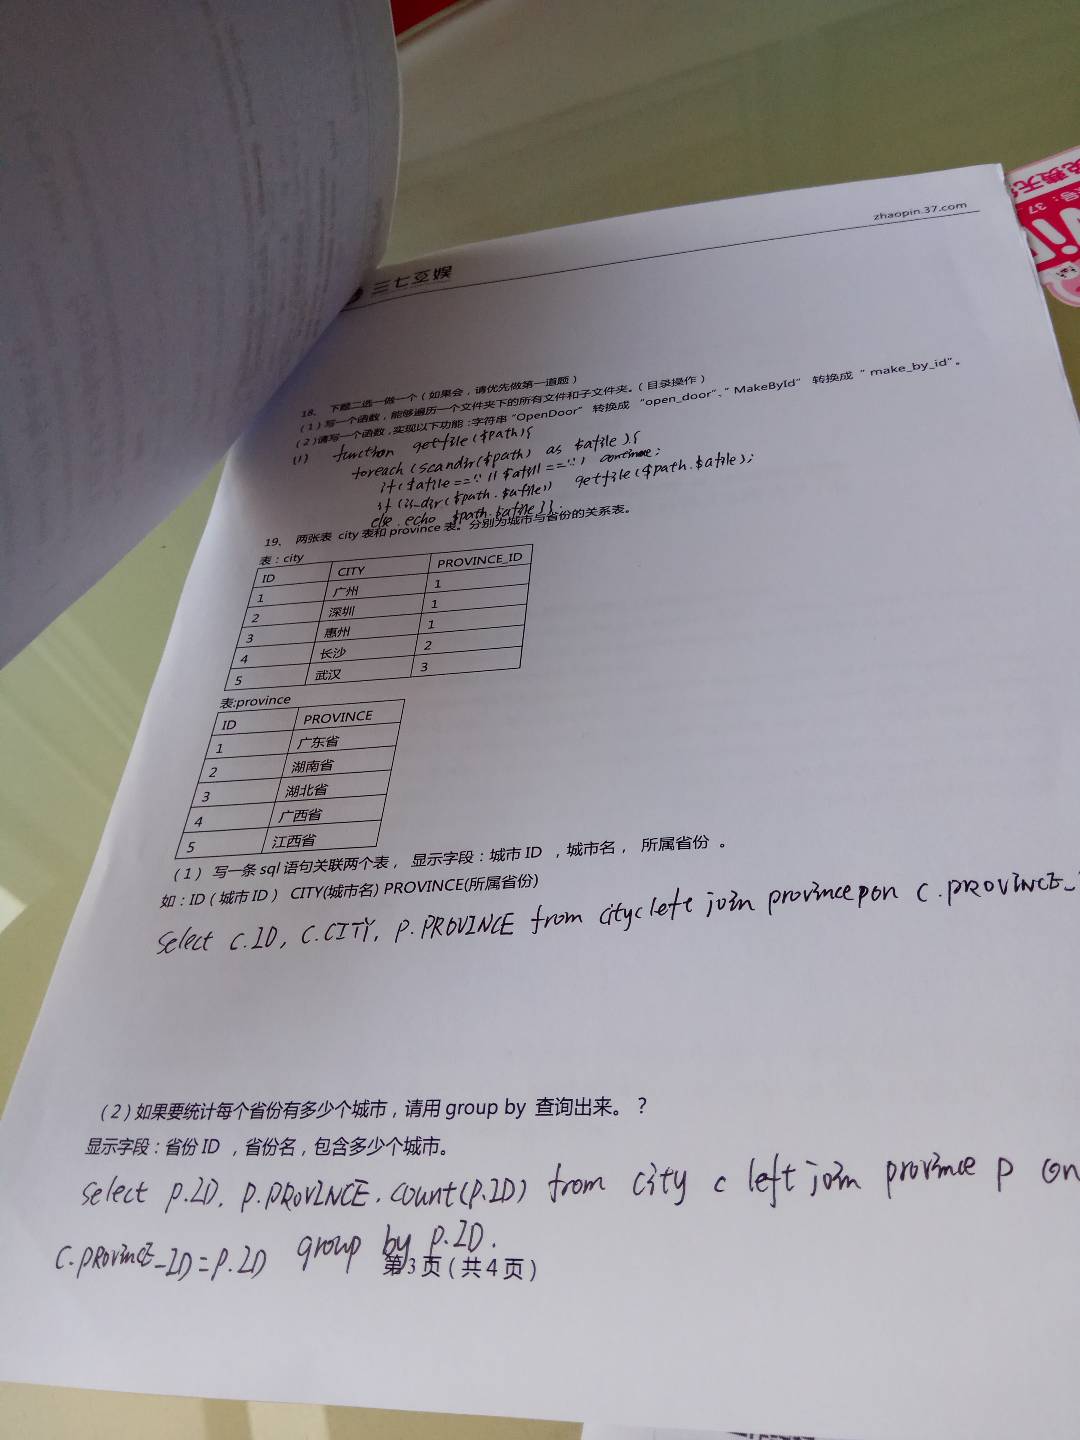 zhaopin.37.com
三七互娱
18、 下题二选一做一个（如果会，请优先做第一道题）
（1）写一个函数，能够遍历一个文件夹下的所有文件和子文件夹。（目录操作）
（2）请写一个函数，实现以下功能：字符串“OpenDoor” 转换成 “open_door”、“MakeById” 转换成 “make_by_id”。
(1) function getfile($path){
foreach(scandir($path) as $afile){
if($afile=='.'||$afile=='..') continue;
if(is_dir($path.$afile)) getfile($path.$afile);
else echo $path.$afile}}.
19、 两张表 city 表和 province 表。分别为城市与省份的关系表。
表：city
ID CITY PROVINCE_ID
1 广州 1
2 深圳 1
3 惠州 1
4 长沙 2
5 武汉 3
表:province
ID PROVINCE
1 广东省
2 湖南省
3 湖北省
4 广西省
5 江西省
（1） 写一条 sql 语句关联两个表， 显示字段：城市 ID ，城市名， 所属省份 。
如：ID（城市 ID） CITY(城市名) PROVINCE(所属省份)
select c.ID, c.CITY, p.PROVINCE from city c left join province p on c.PROVINCE_
（2）如果要统计每个省份有多少个城市，请用 group by 查询出来。？
显示字段：省份 ID ，省份名，包含多少个城市。
select p.ID, p.PROVINCE, count(p.ID) from city c left join province p on
c.PROVINCE_ID=p.ID group by p.ID.
第 3 页（共 4 页）